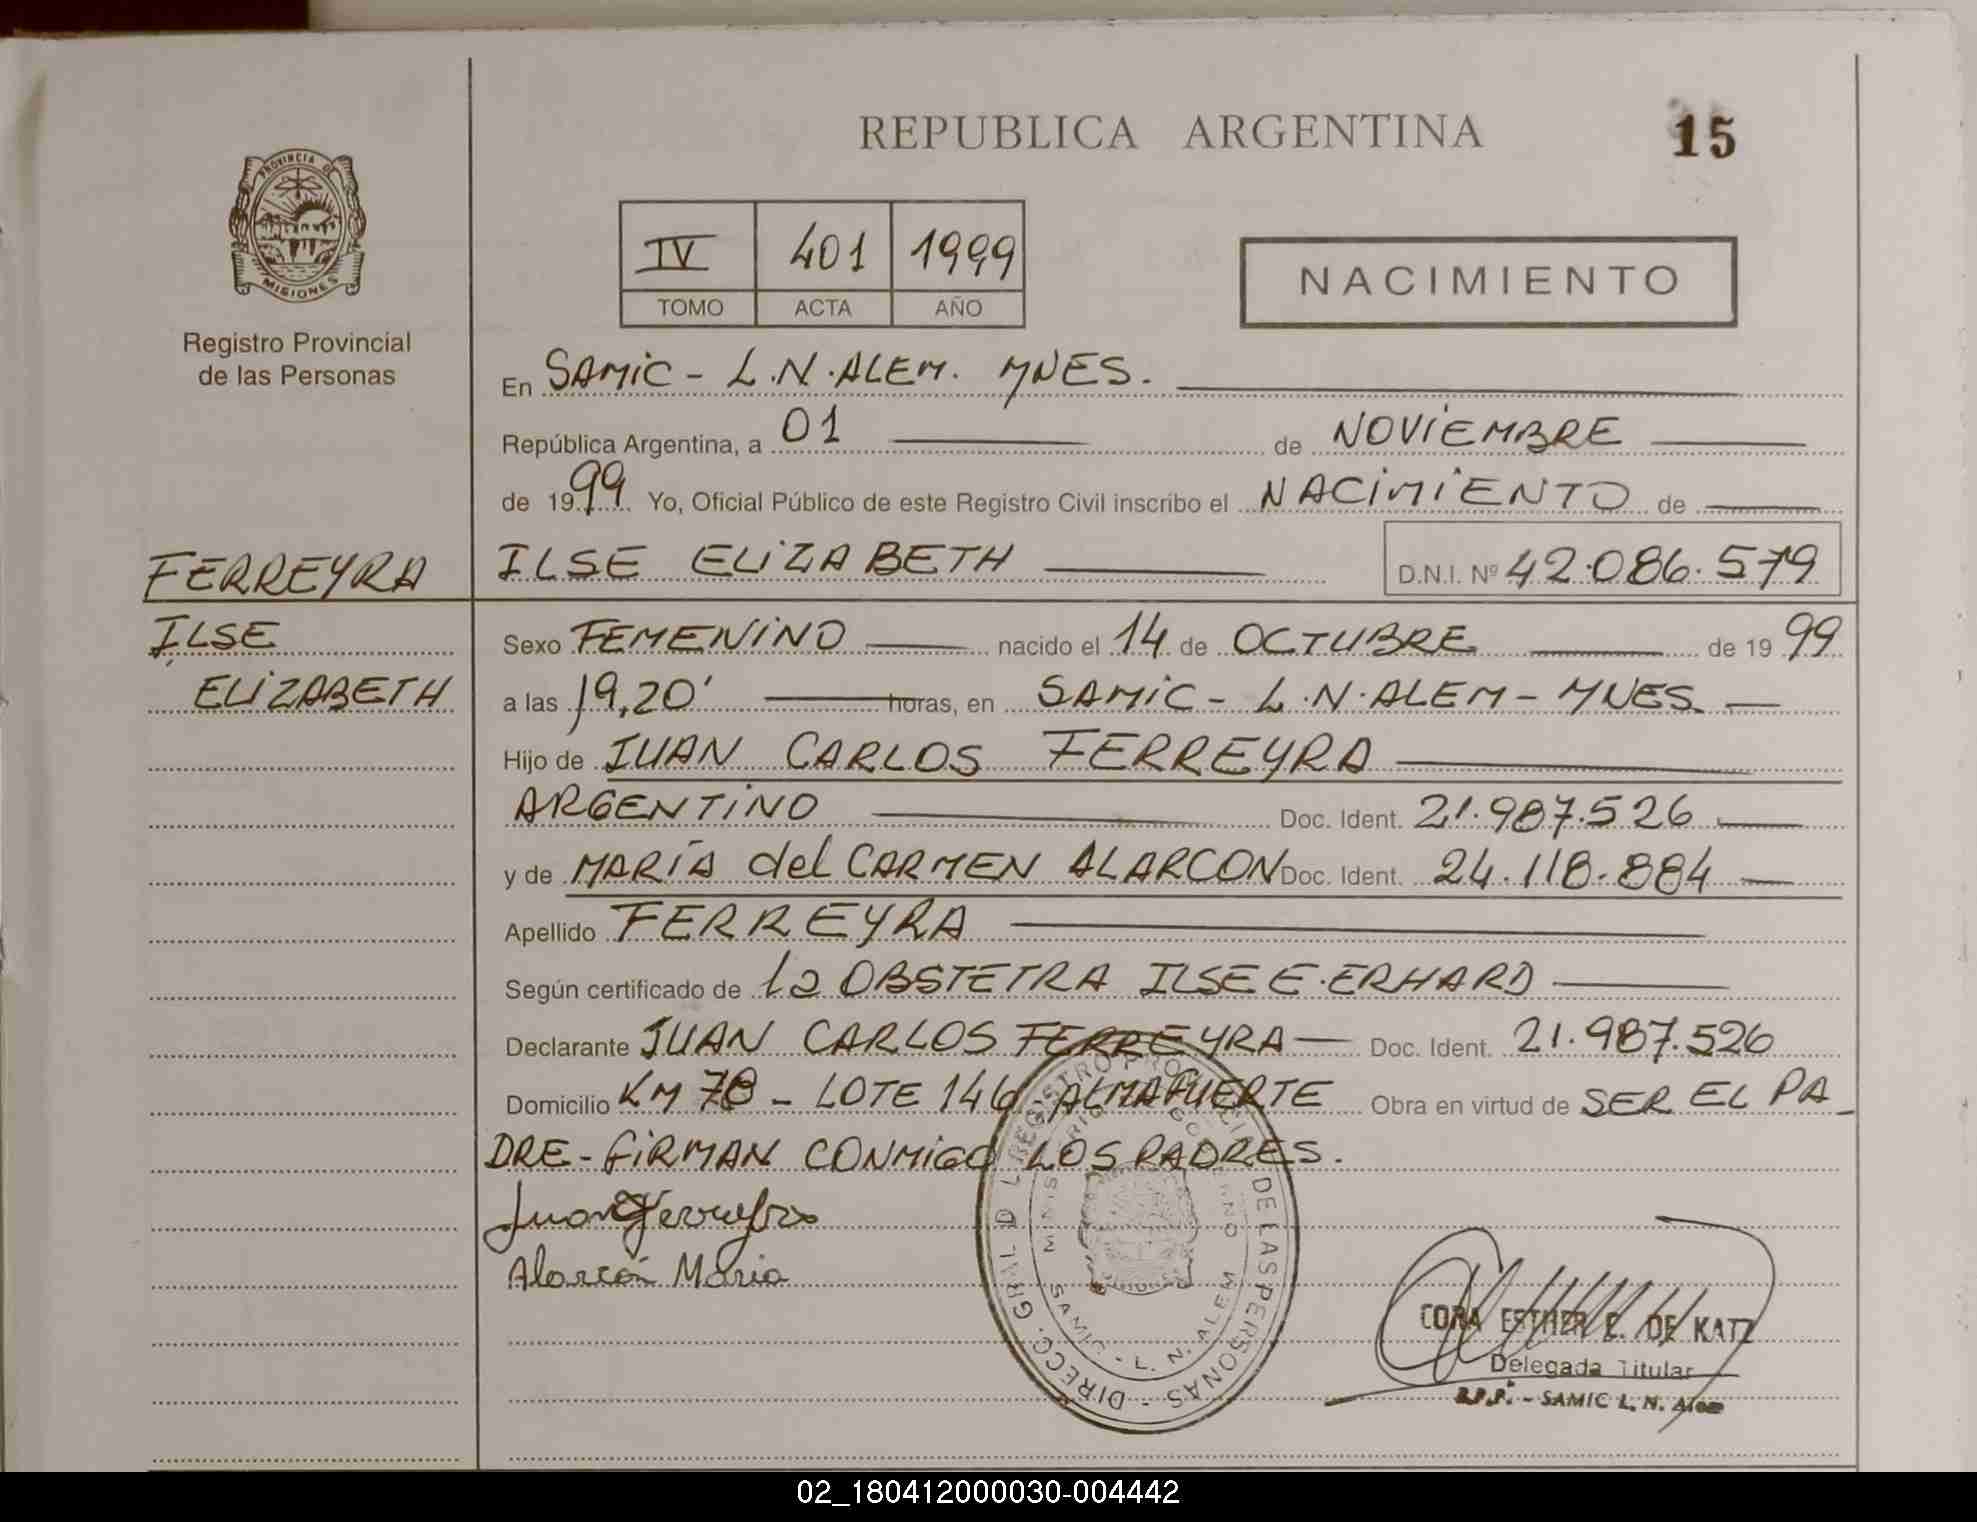 REPUBLICA ARGENTINA
15
PROVINCIA DE
MISIONES
Registro Provincial
de las Personas
IV 401 1999
TOMO ACTA AÑO
NACIMIENTO
En SAMIC - L.N.ALEM. MNES.
República Argentina, a 01 de NOVIEMBRE
de 1999 Yo, Oficial Público de este Registro Civil inscribo el NACIMIENTO de
FERREYRA
ILSE
ELIZABETH
ILSE ELIZABETH D.N.I. Nº 42.086.579
Sexo FEMENINO nacido el 14 de OCTUBRE de 1999
a las 19,20' horas, en SAMIC - L.N.ALEM - MNES.
Hijo de JUAN CARLOS FERREYRA
ARGENTINO Doc. Ident. 21.987.526
y de MARÍA del CARMEN ALARCON Doc. Ident. 24.118.884
Apellido FERREYRA
Según certificado de la OBSTETRA ILSE E. ERHARD
Declarante JUAN CARLOS FERREYRA Doc. Ident. 21.987.526
Domicilio KM 78 - LOTE 146 - ALMAFUERTE Obra en virtud de SER EL PA_
DRE - FIRMAN CONMIGO LOS PADRES.
Juan Ferreyra
Alarcón Maria
DIRECC. GRAL D L REGISTRO PROVINCIAL DE LAS PERSONAS
MINISTERIO GOBIERNO
SAMIC - L. N. ALEM
CORA ESTHER E. DE KATZ
Delegada Titular
R.P.P. - SAMIC L. N. Alem
02_180412000030-004442